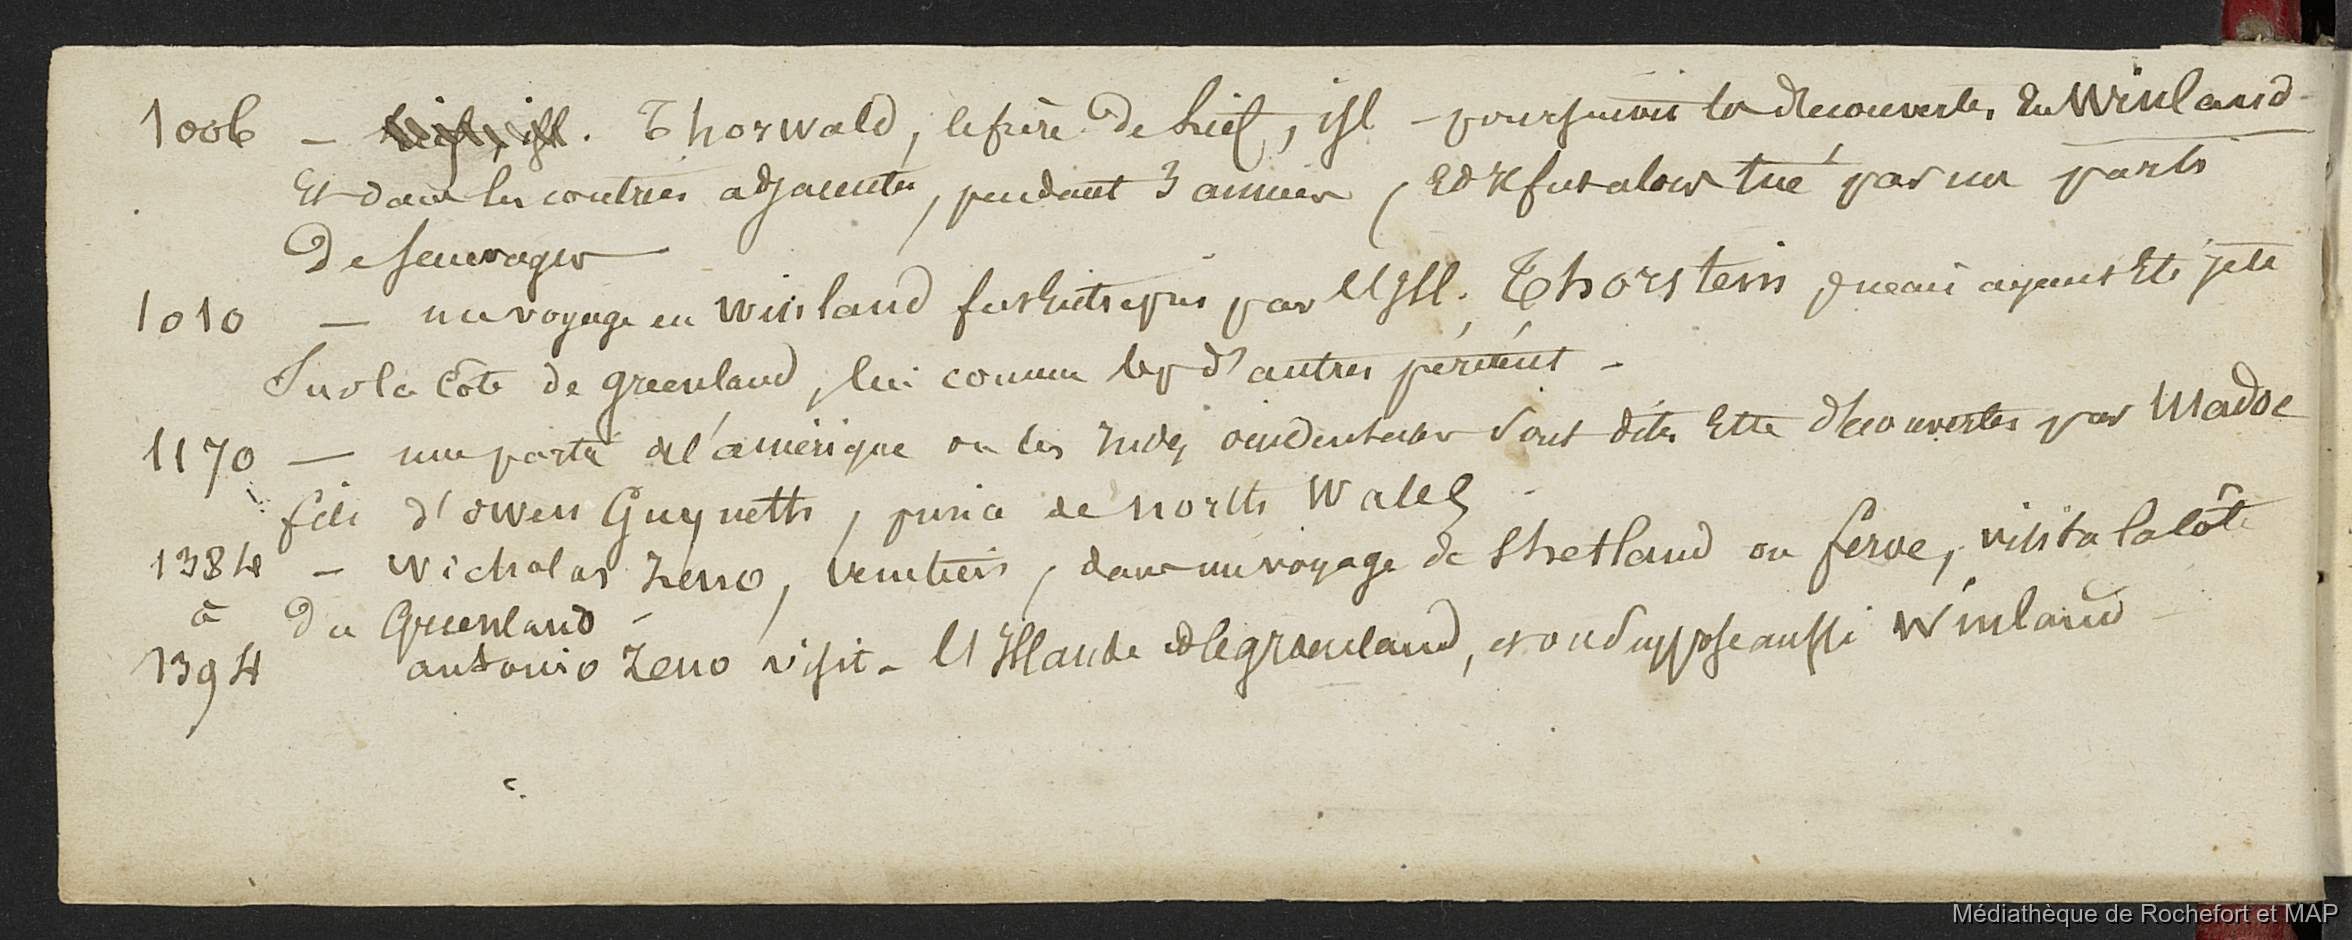 1006 — Thorwald, le frère de Lief, isl – poursuivit la découverte, du Winland
et dans les contrées adjacentes, pendant 3 années, et fut alors tué par un parti
de sauvages
1010 — un voyage en Winland fut entrepris par l'Isl. Thorstein ayant été jeté
sur la côte de Greenland, lui comme d'autres périrent –
1170 — une partie de l'amérique ou les Indes occidentales sont dites être découvertes par Madoc
fils d'owen Guynetts, prince de North Wales
1384 – Nicholas Zeno, venetien, dans un voyage de Shetland ou feroe, visita la côte
à du Greenland –
1394 antonio Zeno visit – l'Islande et le groenland, et on suppose aussi Winland –
Médiathèque de Rochefort et MAP